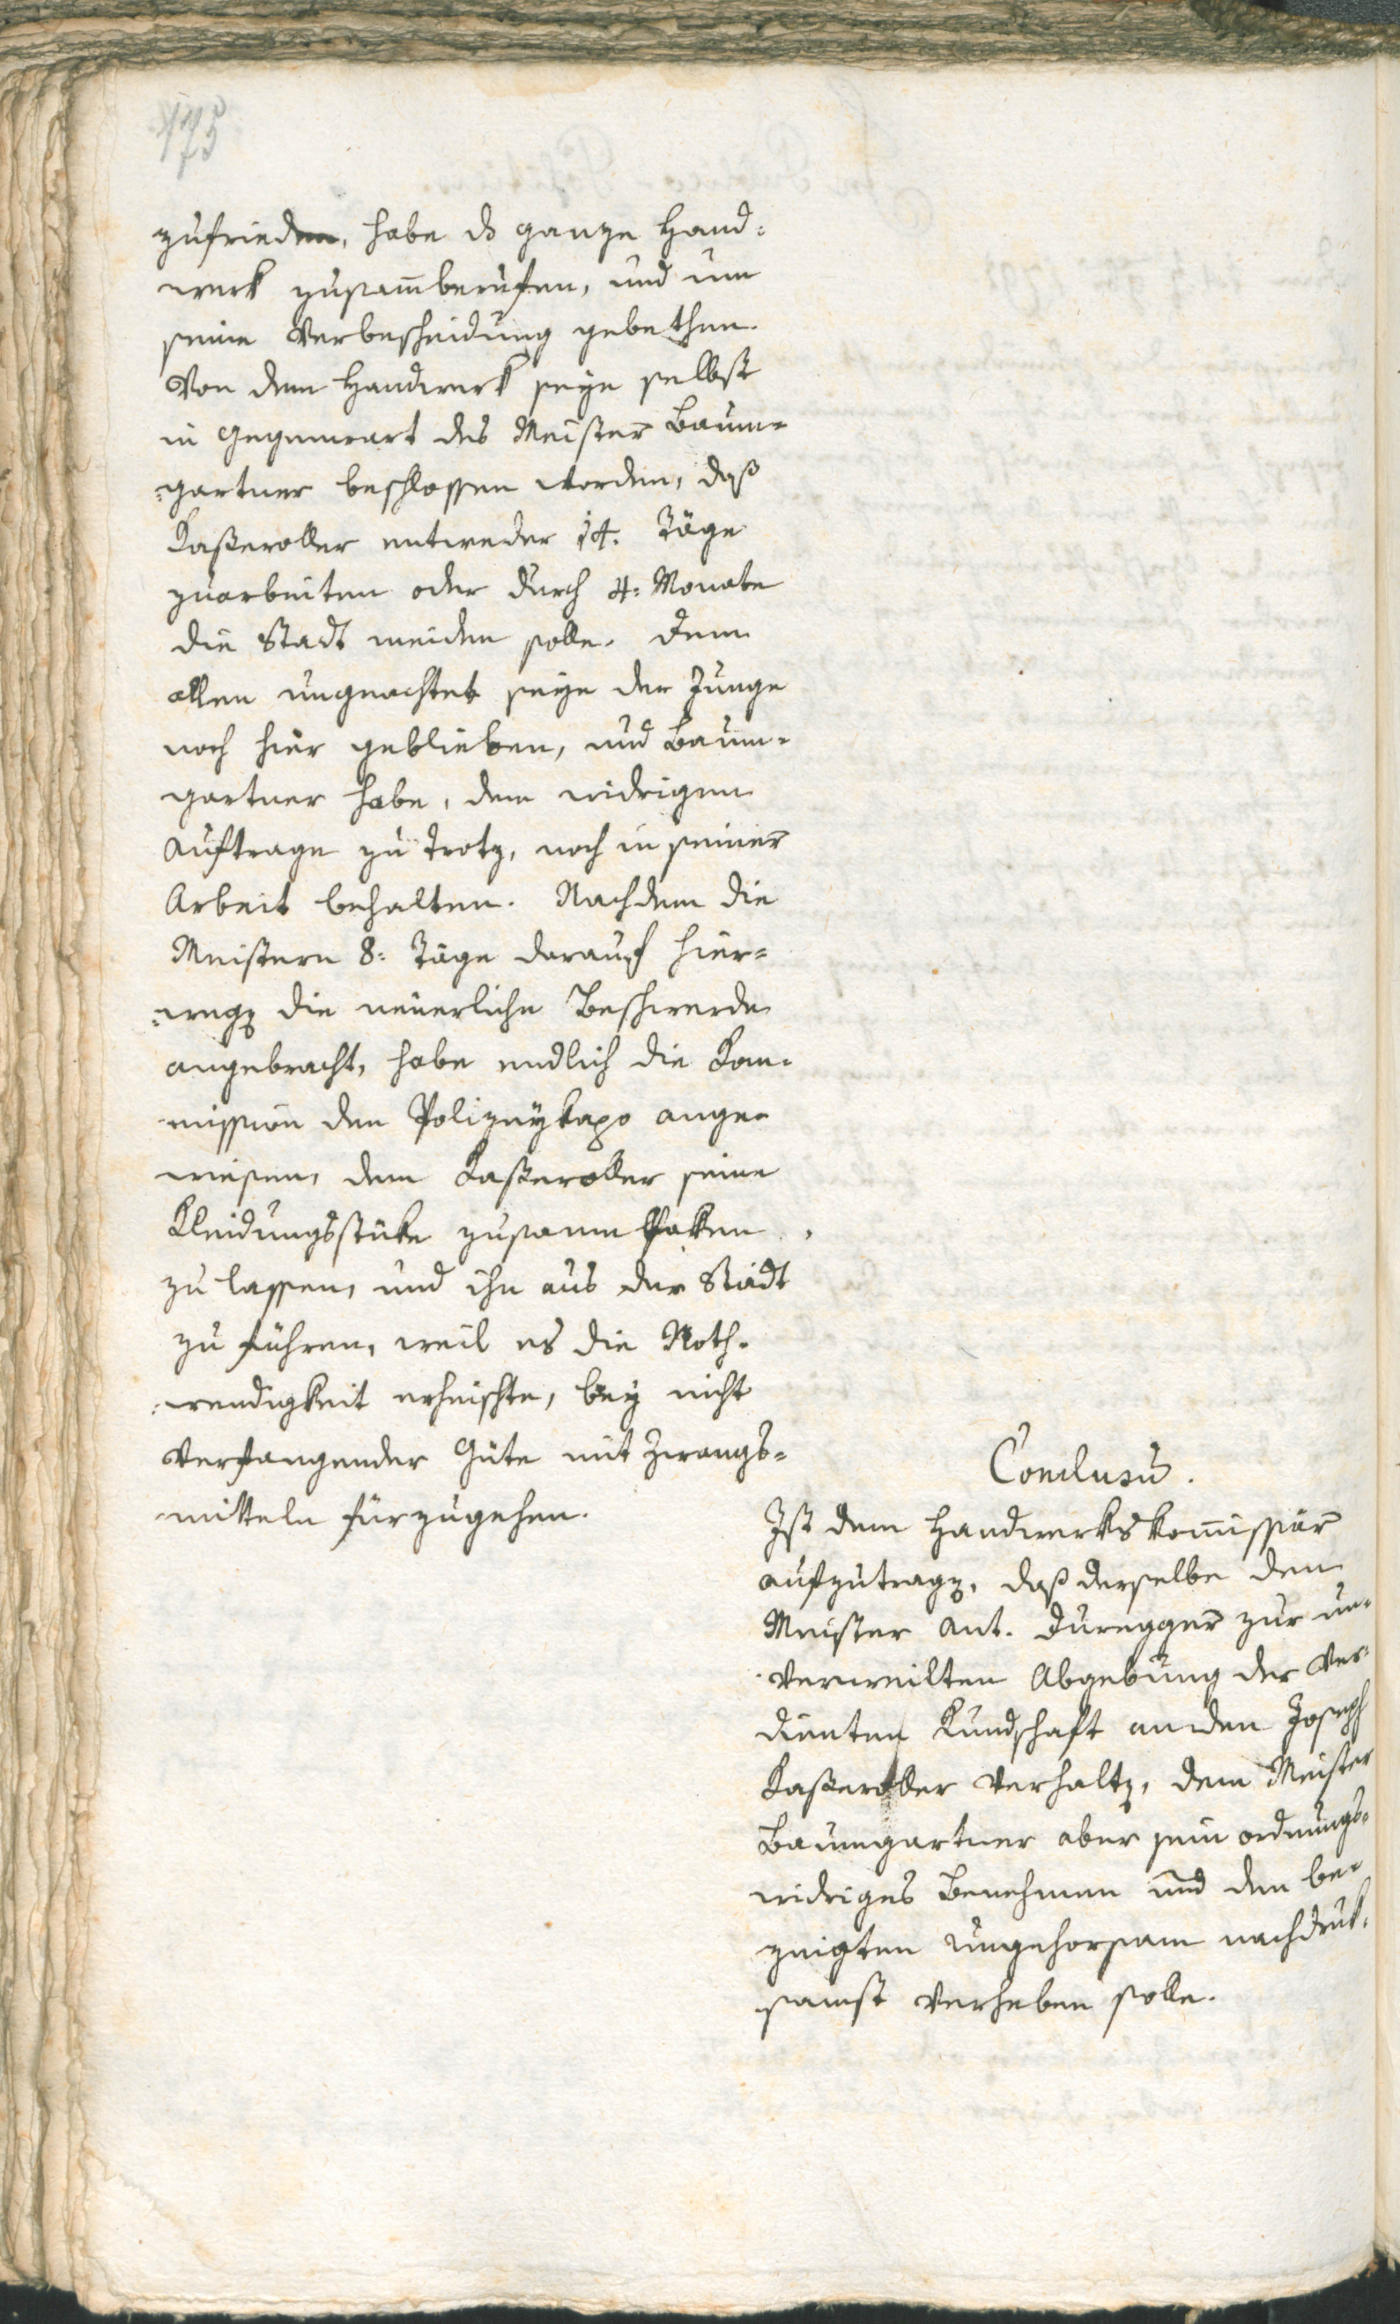 175
zufrieden, habe ds ganze Hand=
werk zusam̅berufen, und um
seine Verbescheidung gebethen.
Von dem Handwerk seye selbst
in Gegenwart des Meister Baum=
=gartner beschlossen worden, daß
Kaßeroller entweder 14. Täge
zuarbeiten oder durch 4: Monate
die Stadt meiden solle. Dem
allen ungeachtet seye der Junge
noch hier geblieben, und Baum=
gartner habe, dem widrigen
Auftrage zu Trotz, noch in seiner
Arbeit behalten. Nachdem die
Meistern 8: Täge darauf hier=
=wegen die neuerliche Beschwerde
angebracht, habe endlich die Kom=
mission den Polizeykapo ange=
wiesen, dem Kaßeroller seine
Kleidungsstüke zusamm paken
zu lassen, und ihn aus der Stadt
zu führen, weil es die Noth=
=wendigkeit erheischte, bey nicht
verfangender Güte mit Zwangs=
mitteln fürzugehen.
Conclusū.
Ist dem Handwerkskom̅issär
aufzutragen, daß derselbe den
Meister Ant. Duregger zur un=
verweilten Abgebung der ver=
dienten Kundschaft an den Joseph
Kaßeroller verhalten, dem Meister
Baumgartner aber sein ordnungs=
widriges Benehmen und den be=
zeigten Ungehorsam nachdruk=
samst verheben solle.